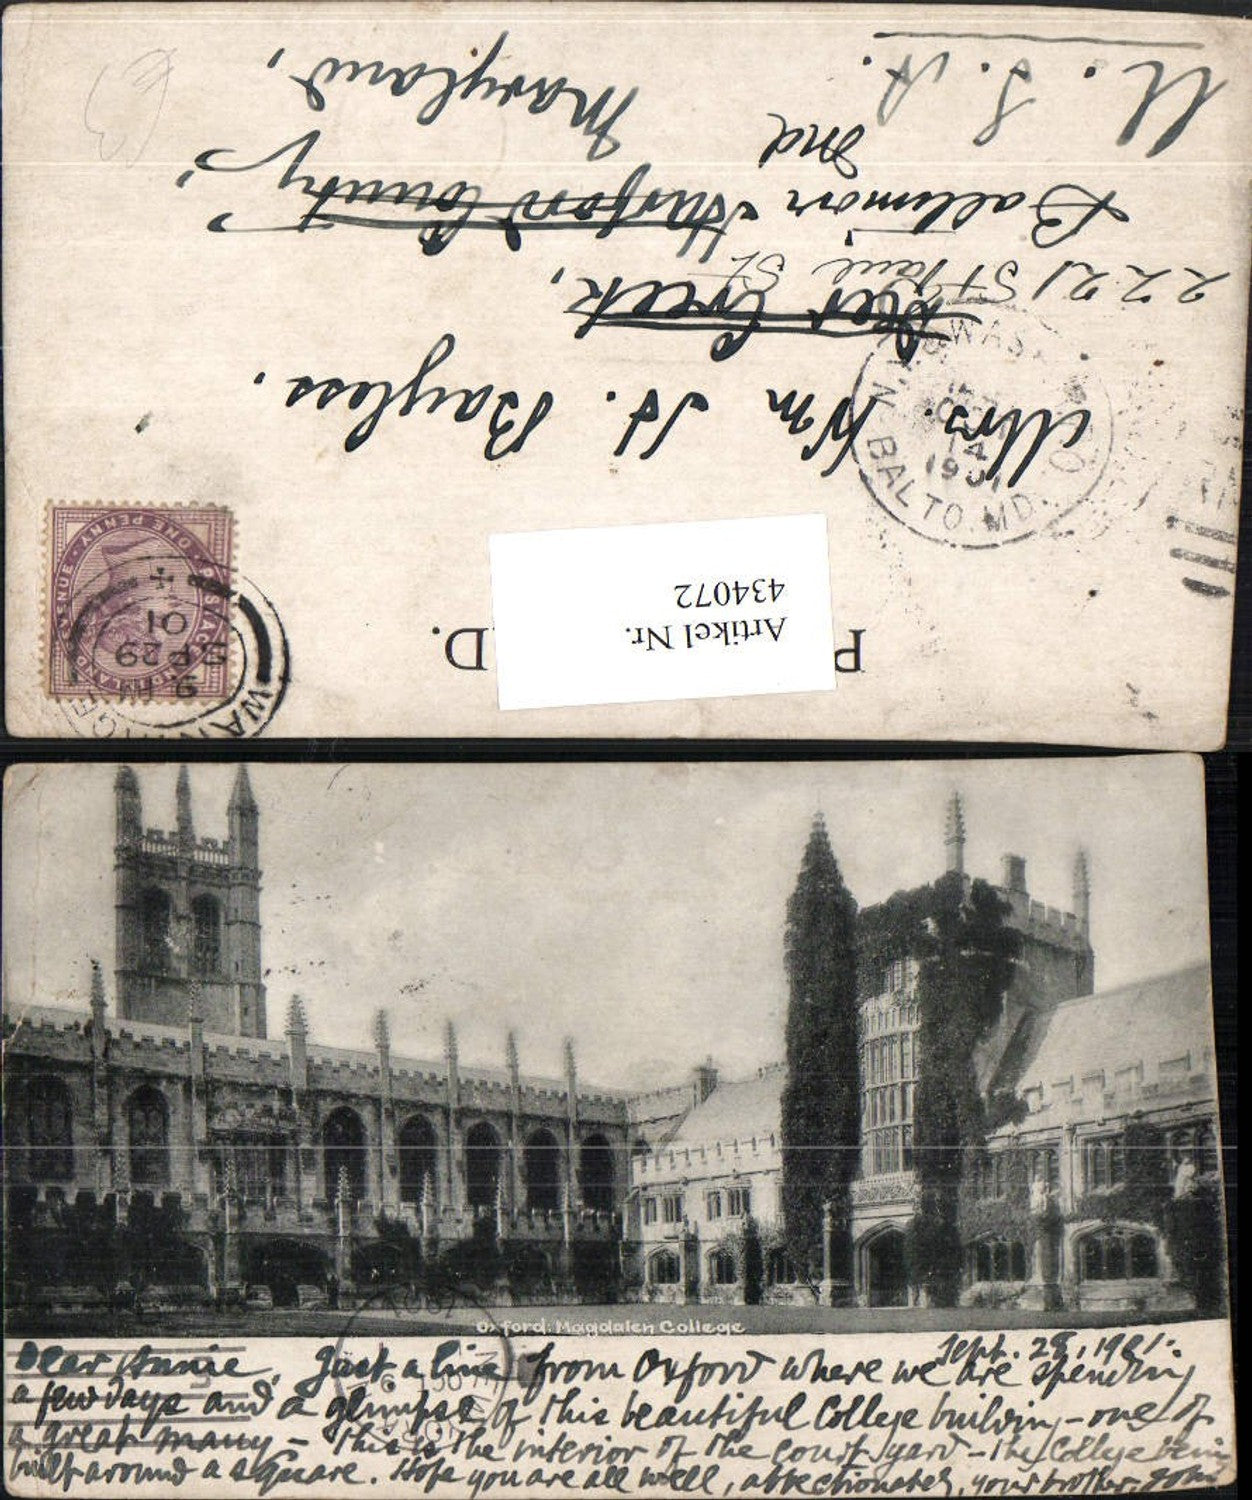 P D.
Artikel Nr.
434072
POSTAGE AND INLAND REVENUE · ONE PENNY
9 PM
SP 29
01
Mrs. Wm H. Bayless.
Deer Creek,
2221 St Paul St
Harford County,
Baltimore
Md
Maryland,
U. S. A.
BALTO. MD.
14
1901
Oxford: Magdalen College
Sept. 28, 1901.
Dear Annie, Just a line from Oxford where we are spending
a few days and a glimpse of this beautiful College building - one of
a great many - This is the interior of the court yard - the College being
built around a square. Hope you are all well, affectionately, your brother, John